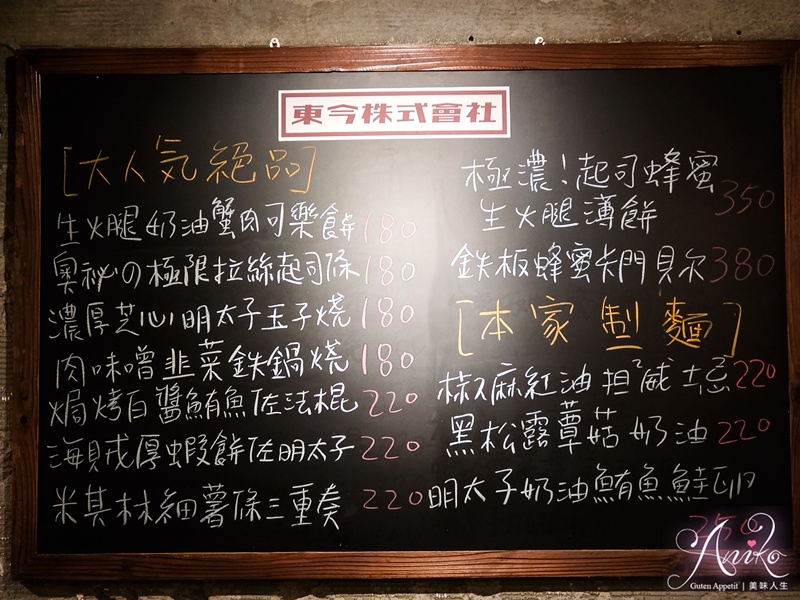 東今株式會社
[大人気絕品]
生火腿奶油蟹肉可樂餅 180
奧祕の極限拉絲起司條 180
濃厚芝心明太子玉子燒 180
肉味噌韭菜鉄鍋燒 180
焗烤白醬鮪魚佐法棍 220
海貝戎厚蝦餅佐明太子 220
米其林細薯條三重奏 220
極濃!起司蜂蜜
生火腿薄餅 350
鉄板蜂蜜卡門貝尔 380
[本家製麵]
椒麻紅油担担威士忌 220
黑松露蕈菇奶油 220
明太子奶油鮪魚鮭卵
350
Aniko
Guten Appetit | 美味人生